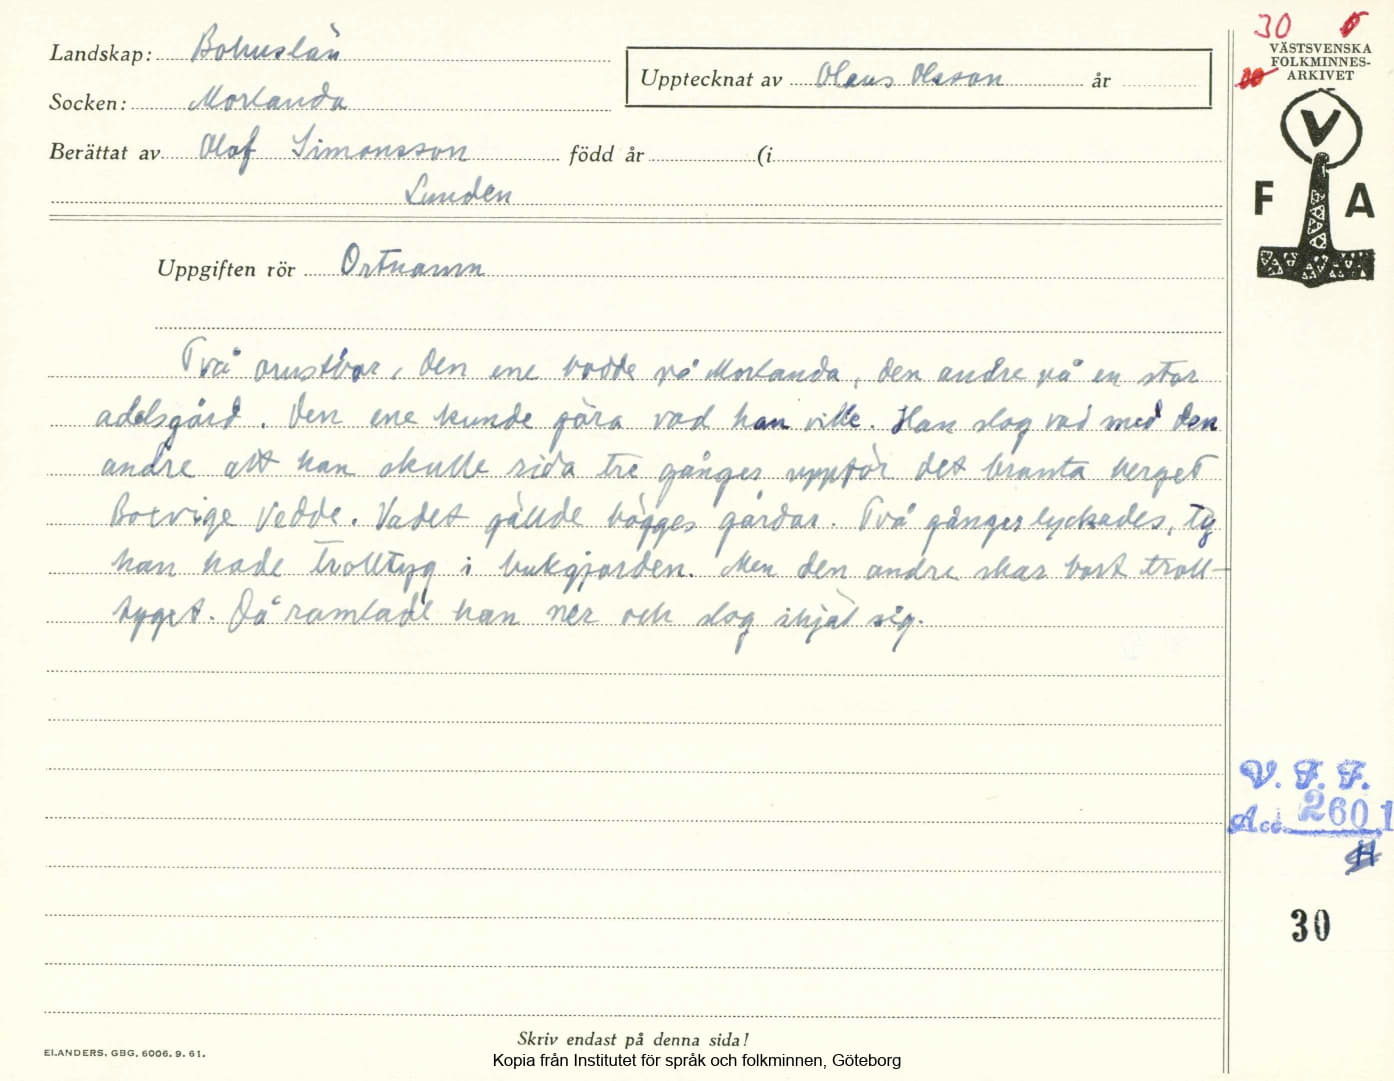 Landskap: Bohuslän
Socken: Morlanda
Berättat av Olof Simonsson född år (i
Lunden
Upptecknat av Olaus Olsson år
Uppgiften rör Ortnamn
Två orustbor, den ene bodde på Morlanda, den andre på en stor
adelsgård. Den ene kunde göra vad han ville. Han slog vad med den
andre att han skulle rida tre gånger uppför det branta berget
Boxvige Vedde. Vadet gällde bägges gårdar. Två gånger lyckades, ty
han hade trolltyg i bukgjorden. Men den andre skar bort troll-
tyget. Då ramlade han ner och slog ihjäl sig.
30
VÄSTSVENSKA
FOLKMINNES-
ARKIVET
V
F A
V. F. F.
Acc. 2601
H
30
Skriv endast på denna sida!
ELANDERS, GBG, 6006. 9. 61.
Kopia från Institutet för språk och folkminnen, Göteborg